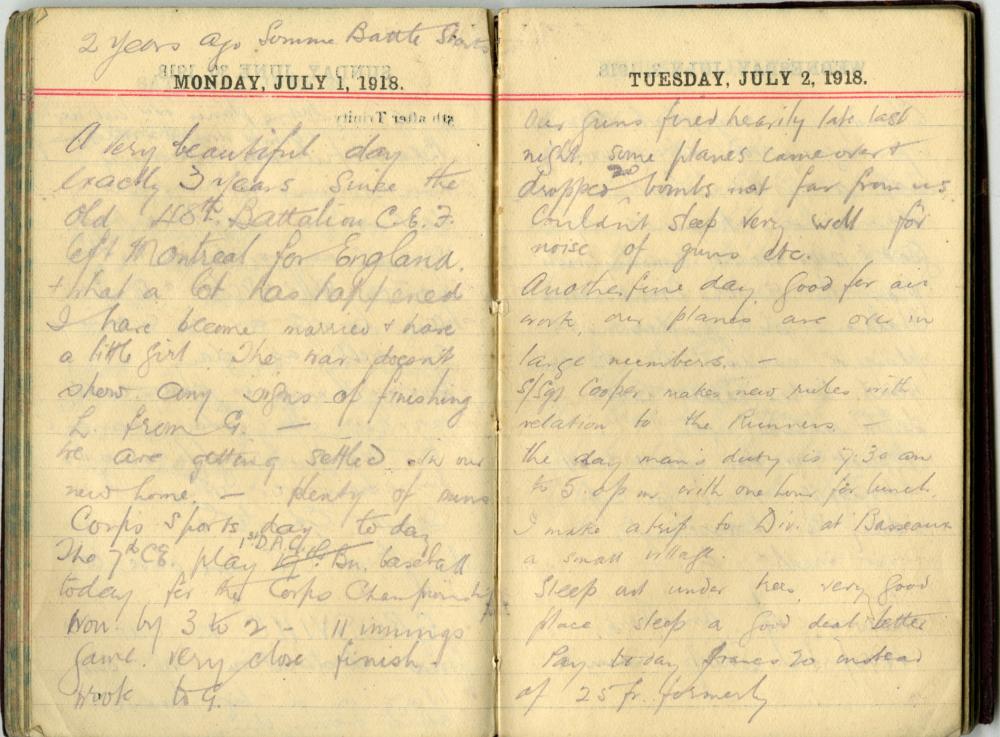 2 years ago Somme Battle Starts
MONDAY, JULY 1, 1918.
A very beautiful day
Exactly 3 years since the
Old 48th Battalion C.E.F.
left Montreal for England.
+ what a lot has happened
I have become married & have
a little girl. The war doesn't
show any signs of finishing
L from G. —
We are getting settled in our
new home. — plenty of
Corps Sports day today
The 7th C.E. play 1st D.A.C. Bn. baseball
today for the Corps Championship
Won by 3 to 2 – 11 innings
game. very close finish –
wrote to G.
TUESDAY, JULY 2, 1918.
Our guns fired heavily late last
night. some planes came over &
dropped bombs not far from us.
Couldn't sleep very well for
noise of guns etc.
Another fine day. Good for air
work, our planes are over in
large numbers. –
S/Sgt Cooper makes new rules with
relation to the Runners –
the day man's duty is 7.30 am
to 5. pm with one hour for lunch.
I make a trip to Div. at Basseaux
a small village.
Sleep out under trees, very good
place. sleep a good deal better
Pay today francs 20 instead
of 25 fr. formerly